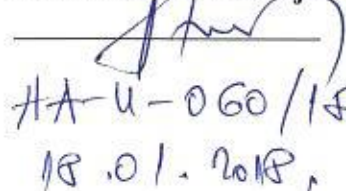 HA-U-060/18
18.01.2018.